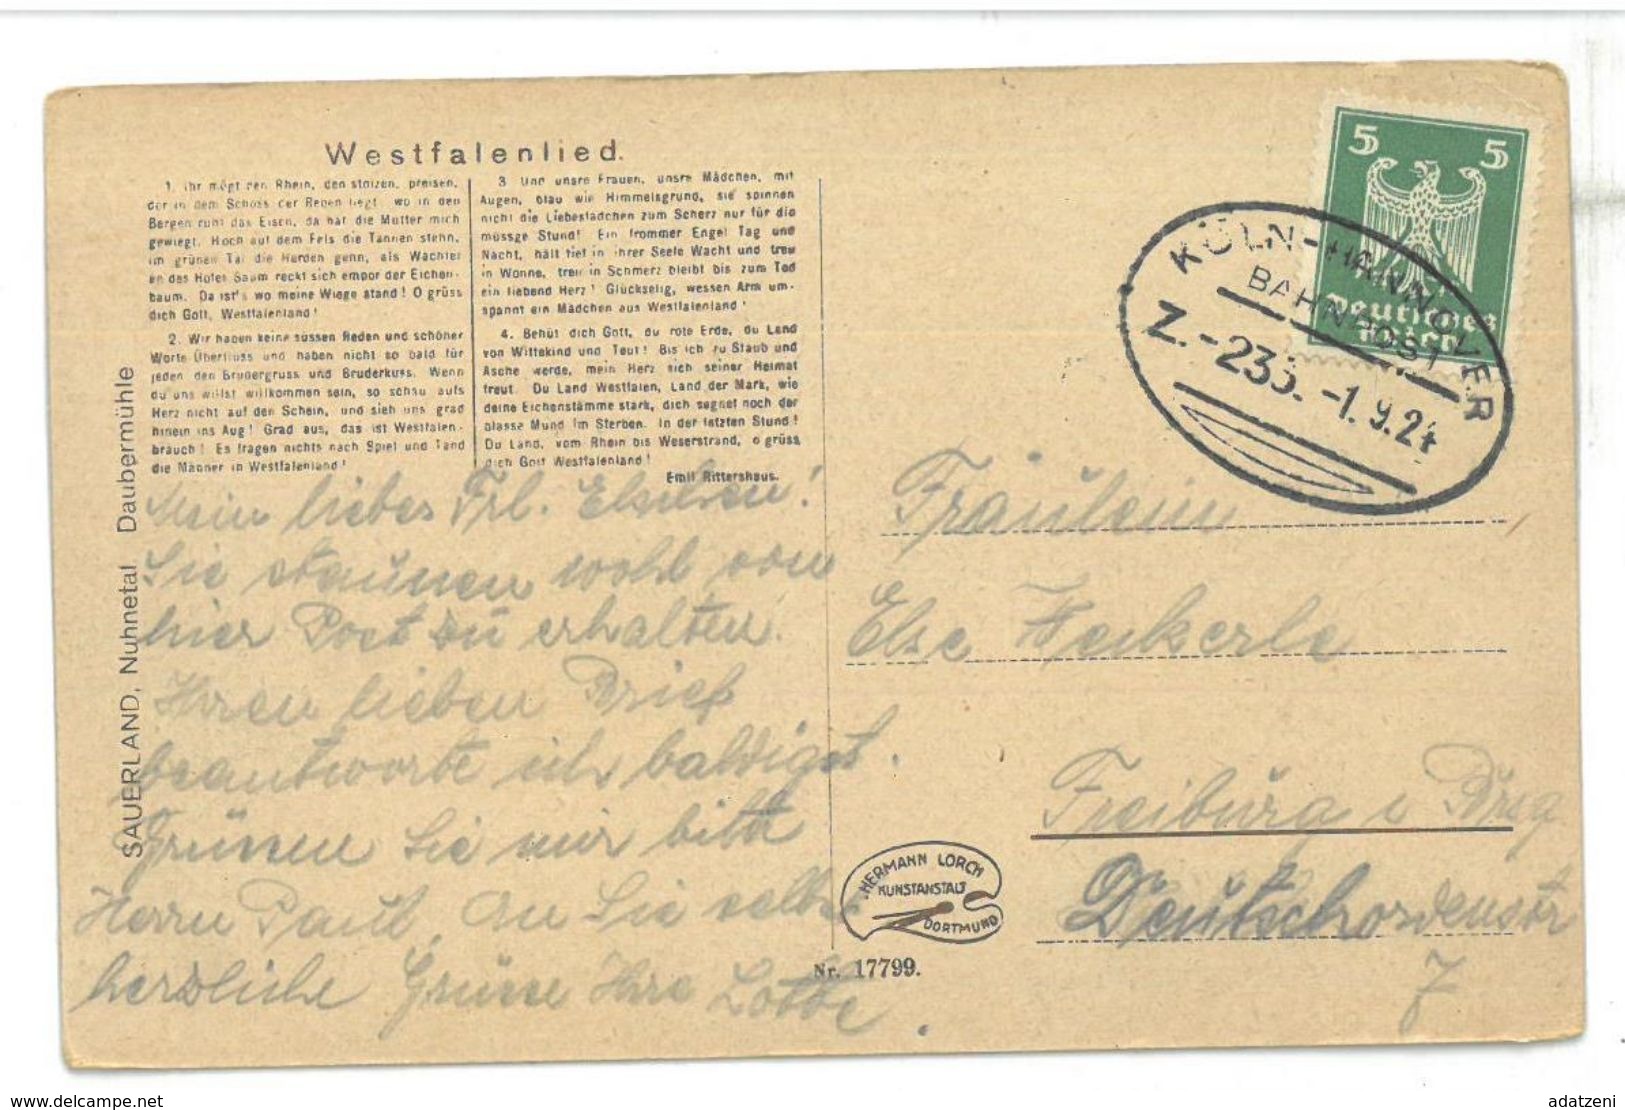 Westfalenlied.
1. Ihr mögt den Rhein, den stolzen, preisen,
der in dem Schoss der Reben liegt, wo in den
Bergen ruht das Eisen, da hat die Mutter mich
gewiegt. Hoch auf dem Fels die Tannen stehn,
im grünen Tal die Herden gehn, als Wächter
an des Hofes Saum reckt sich empor der Eichen-
baum. Da ist's wo meine Wiege stand! O grüss
dich Gott, Westfalenland!
2. Wir haben keine süssen Reden und schöner
Worte Überfluss und haben nicht so bald für
jeden den Brudergruss und Bruderkuss. Wenn
du uns willst willkommen sein, so schau aufs
Herz nicht auf den Schein, und sieh uns grad
hinein ins Aug! Grad aus, das ist Westfalen-
brauch! Es fragen nichts nach Spiel und Tand
die Männer in Westfalenland!
3 Und unsre Frauen, unsre Mädchen, mit
Augen, blau wie Himmelsgrund, sie spinnen
nicht die Liebesfädchen zum Scherz nur für die
müssge Stund! Ein frommer Engel Tag und
Nacht, hält tief in ihrer Seele Wacht und treu
in Wonne, treu in Schmerz bleibt bis zum Tod
ein liebend Herz! Glückselig, wessen Arm um-
spannt ein Mädchen aus Westfalenland!
4. Behüt dich Gott, du rote Erde, du Land
von Wittekind und Teut! Bis ich zu Staub und
Asche werde, mein Herz sich seiner Heimat
freut. Du Land Westfalen, Land der Mark, wie
deine Eichenstämme stark, dich segnet noch der
blasse Mund im Sterben. In der letzten Stund!
Du Land, vom Rhein bis Weserstrand, o grüss
dich Gott Westfalenland!
Emil Rittershaus.
SAUERLAND, Nuhnetal Daubermühle
Mein liebes Frl. Elschen!
Sie staunen wohl von
hier Post zu erhalten.
Ihren lieben Brief
beantworte ich baldigst.
Grüssen Sie mir bitte
Herrn Paul. An Sie selbst
herzliche Grüsse Ihre Lotte.
5 5
Deutsches
Reich
KÖLN-HANNOVER
BAHNPOST
Z.-235. -1.9.24
Fräulein
Else
Freiburg i Brsg
Deutschordenstr
7
HERMANN LORCH
KUNSTANSTALT
DORTMUND
Nr. 17799.
www.delcampe.net
adatzeni